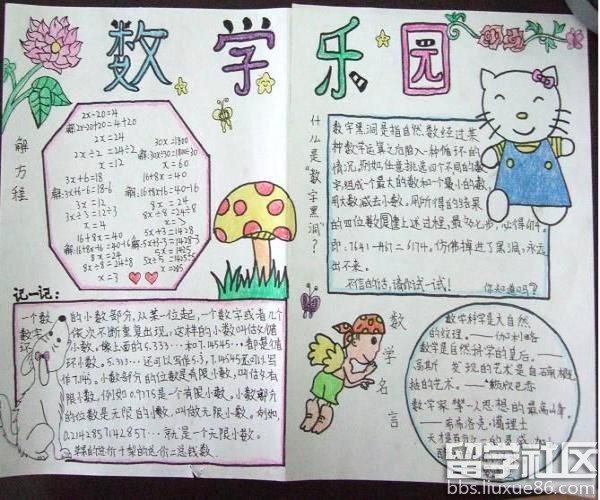 数学乐园
解方程
2x-20=4
解:2x-20+20=4+20
2x=24
2x÷2=24÷2
x=12
3x+6=18
解:3x+6-6=18-6
3x=12
3x÷3=12÷3
x=4
16+8x=40
解:16+8x-16=40-16
8x=24
8x÷8=24÷8
x=3
30x=1800
解:30x÷30=1800÷30
x=60
16+8x=40
解:16+8x-16=40-16
8x=24
8x÷8=24÷8
x=3
记一记:
一个数的小数部分,从某一位起,一个数字或者几个
数字依次不断重复出现,这样的小数叫做循
环小数。像上面的5.333…和7.14545…都是循
环小数。5.333…还可以写作5.3,7.14545还可以写
作7.145。小数部分的位数是有限小数,叫做有
限小数。例如,0.9375是一个有限小数。小数部分
的位数是无限的小数,叫做无限小数。例如,
0.2142857142857…就是一个无限小数。
什么是“数字黑洞”?
数字黑洞是指自然数经过某
种数学运算之后陷入一种循环的
情况。例如,任意挑选四个不同的数
字,组成一个最大的数和一个最小的数,
用大数减去小数。用所得的结果
的四位数重复上述过程,最多七步,必得6174。
即:7641-1467=6174。仿佛掉进了黑洞,永远
出不来。
不信的话,请你试一试!
你知道吗?
数学名言
数学科学是大自然
的纹理。——伽利略
数学是自然科学的皇后。——
高斯
数学家
人思想的最高
留学社区
bbs.liuxue86.com